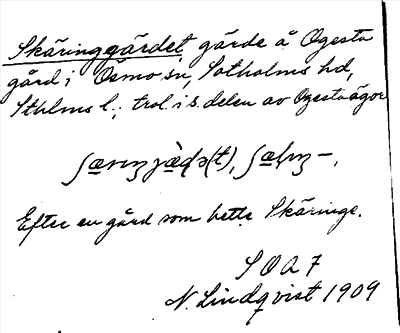 Skäringgärdet, gärde å Ogesta
gård i Ösmo sn, Sotholms hd,
Sthlms l., trol. i s. delen av Ogesta ägor
Efter en gård som hette Skäringe.
S O A 7
N. Lindqvist 1909